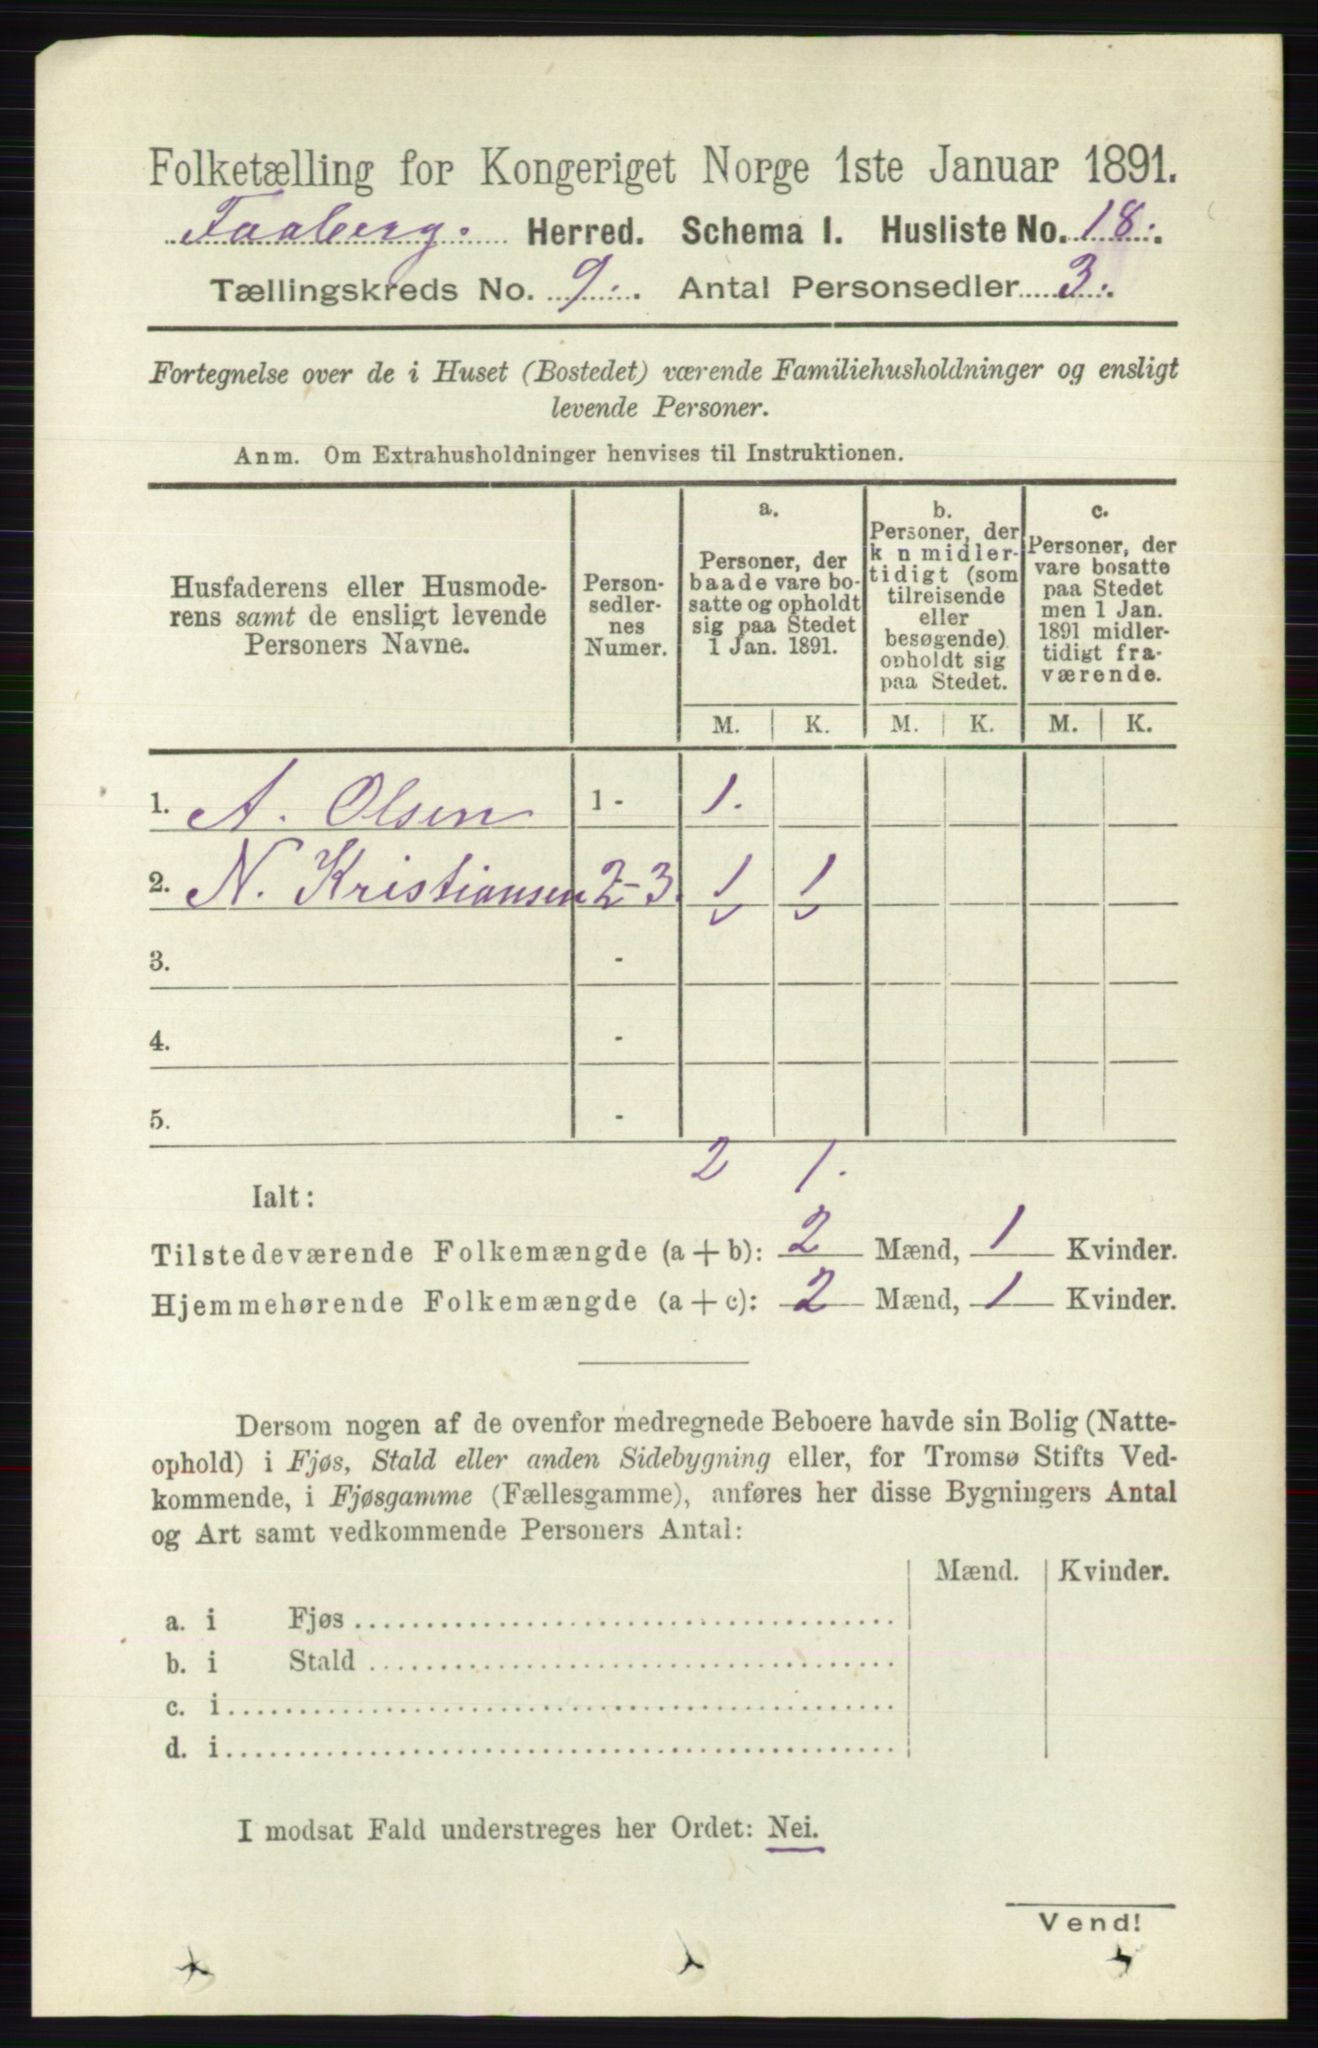 Folketælling for Kongeriget Norge 1ste Januar 1891.
Faaberg. Herred. Schema I. Husliste No. 18.
Tællingskreds No. 9. Antal Personsedler 3.
Fortegnelse over de i Huset (Bostedet) værende Familiehusholdninger og ensligt
levende Personer.
Anm. Om Extrahusholdninger henvises til Instruktionen.
Husfaderens eller Husmode-
rens samt de ensligt levende
Personers Navne.
Person-
sedler-
nes
Numer.
a.
Personer, der
baade vare bo-
satte og opholdt
sig paa Stedet
1 Jan. 1891.
b.
Personer, der
k n midler-
tidigt (som
tilreisende
eller
besøgende)
opholdt sig
paa Stedet.
c.
Personer, der
vare bosatte
paa Stedet
men 1 Jan.
1891 midler-
tidigt fra-
værende.
M. K. M. K. M. K.
1. A. Olsen 1 - 1.
2. N. Kristiansen 2-3. 1 1
3. -
4. -
5. -
2 1.
Ialt:
Tilstedeværende Folkemængde (a + b): 2 Mænd, 1 Kvinder.
Hjemmehørende Folkemængde (a + c): 2 Mænd, 1 Kvinder.
Dersom nogen af de ovenfor medregnede Beboere havde sin Bolig (Natte-
ophold) i Fjøs, Stald eller anden Sidebygning eller, for Tromsø Stifts Ved-
kommende, i Fjøsgamme (Fællesgamme), anføres her disse Bygningers Antal
og Art samt vedkommende Personers Antal:
Mænd. Kvinder.
a. i Fjøs
b. i Stald
c. i
d. i
I modsat Fald understreges her Ordet: Nei.
Vend!